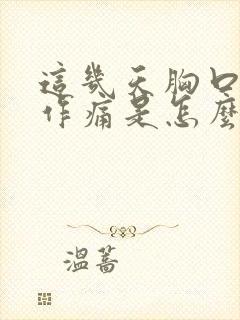 這幾天胸口
作痛是怎麼
溫蒿